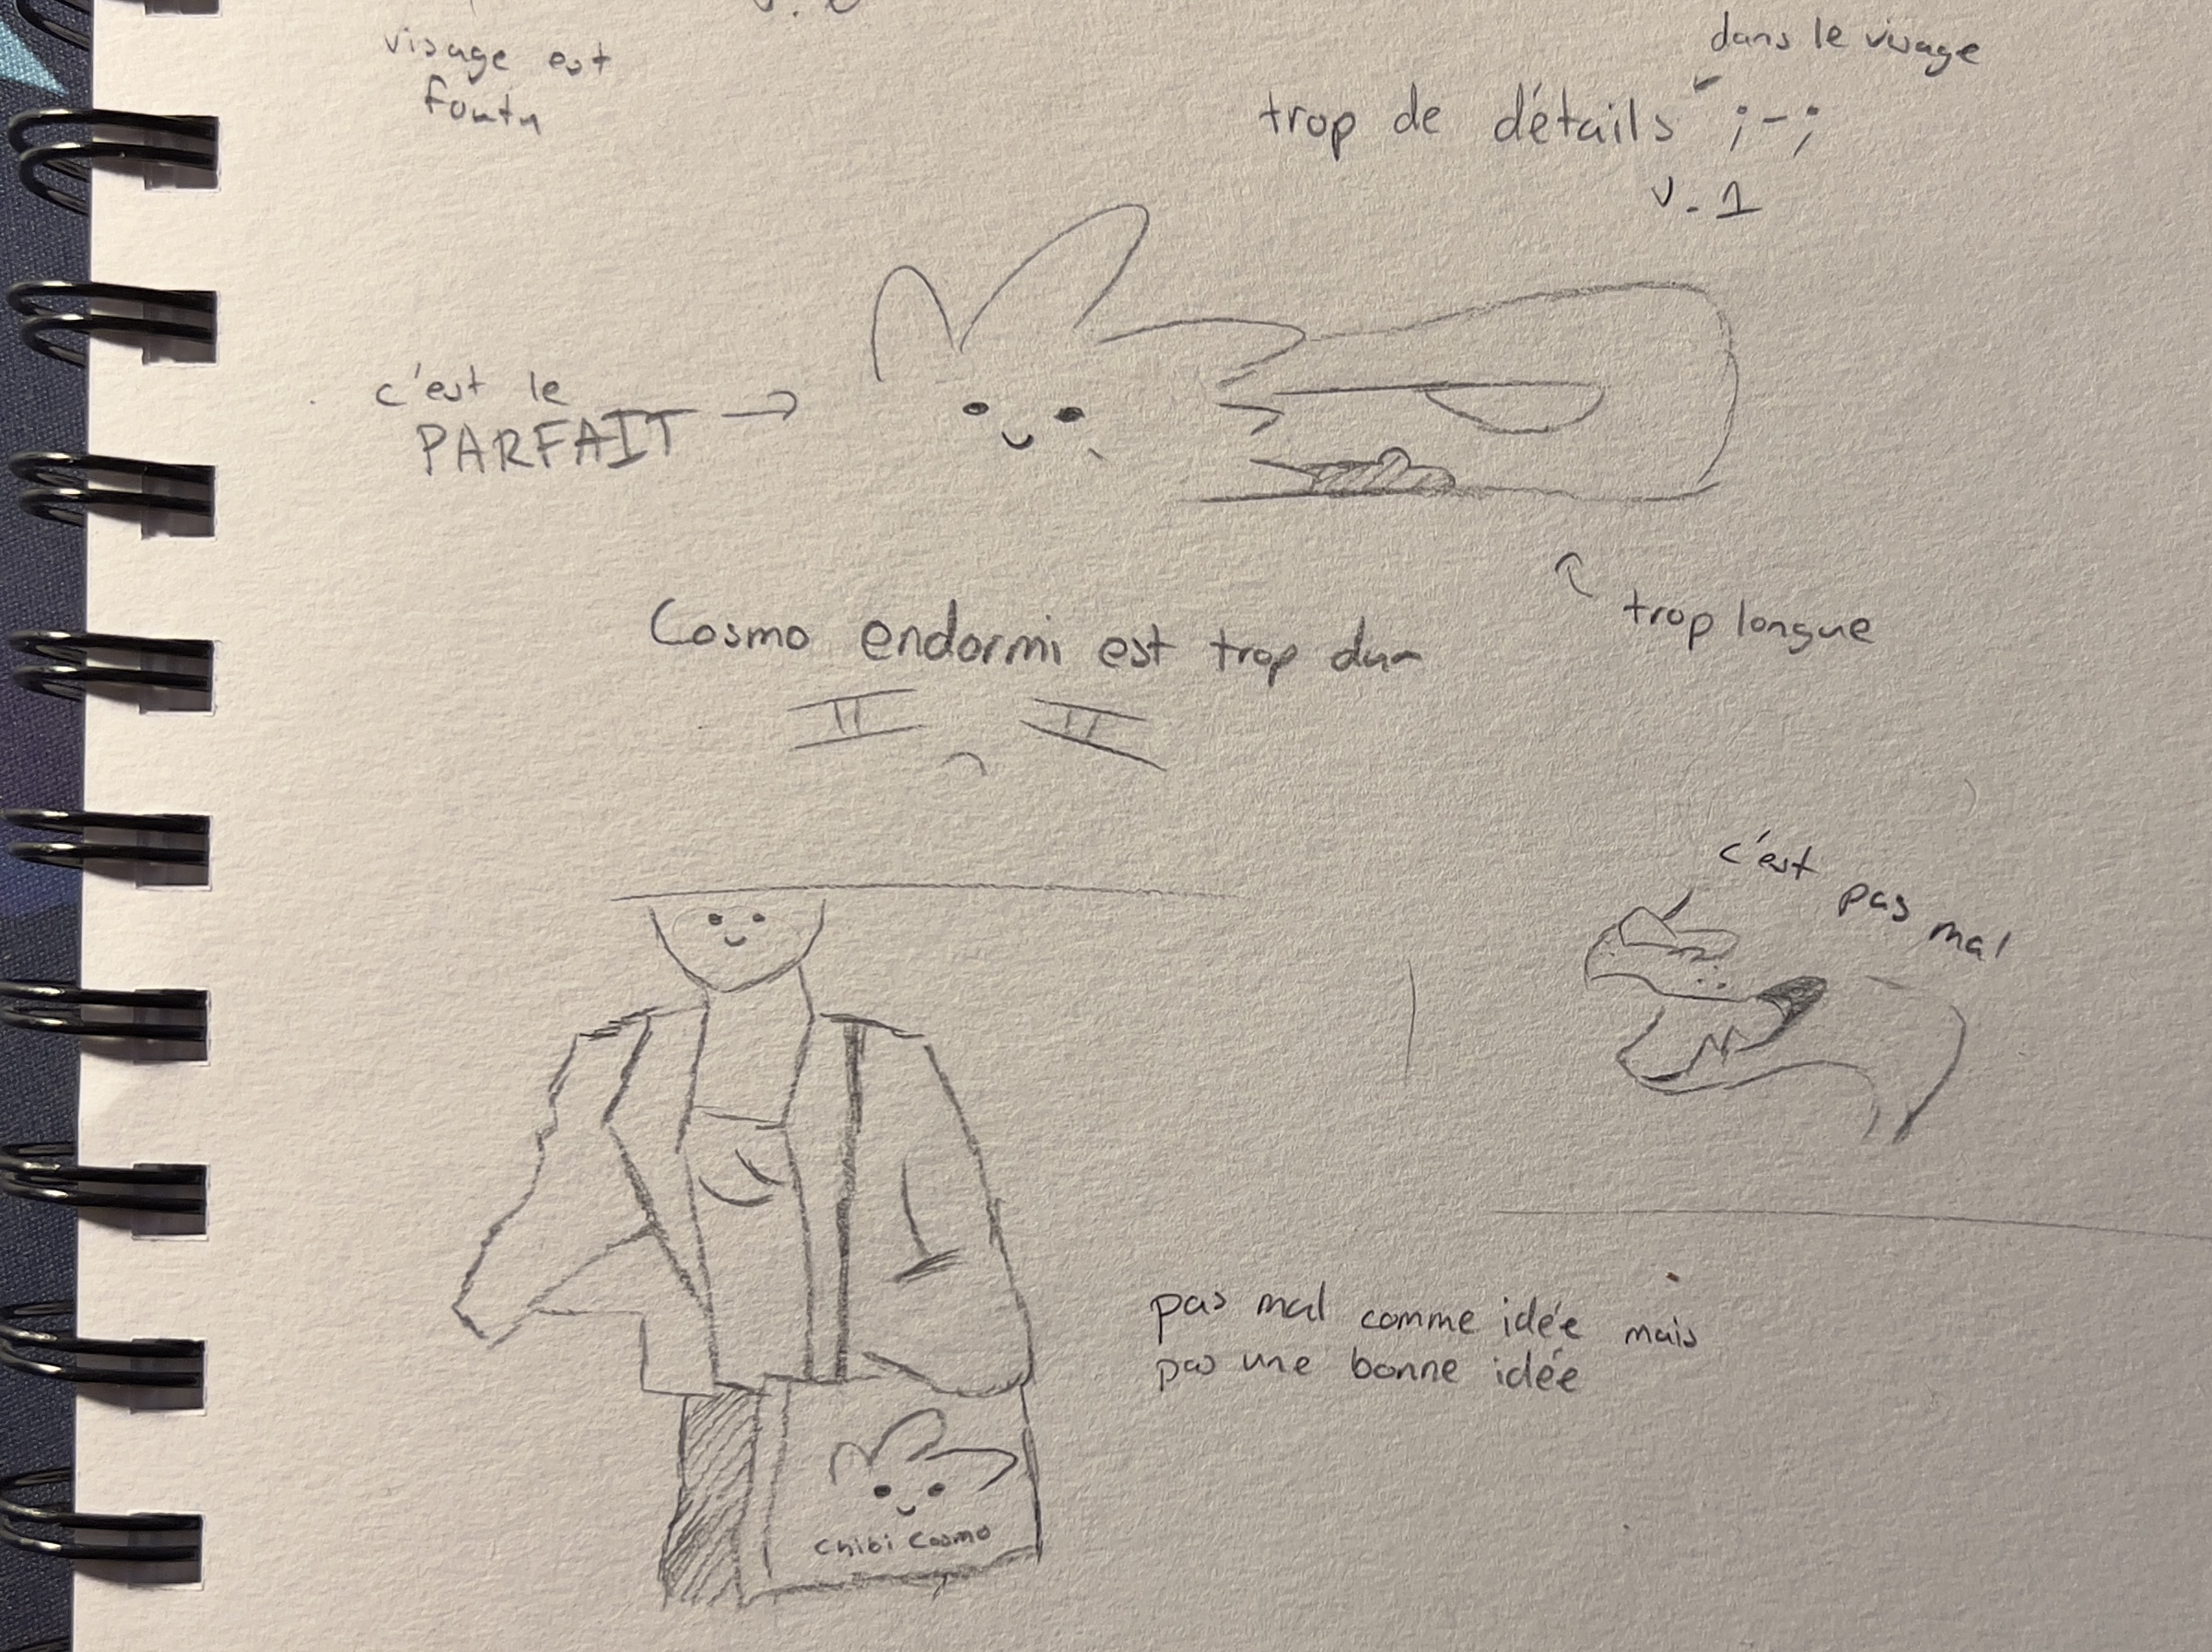 visage est
foutu
dans le visage
trop de détails ;-;
v.1
c'est le
PARFAIT →
trop longue
Cosmo endormi est trop dur
c'est pas mal
pas mal comme idée mais
pas une bonne idée
Chibi Cosmo